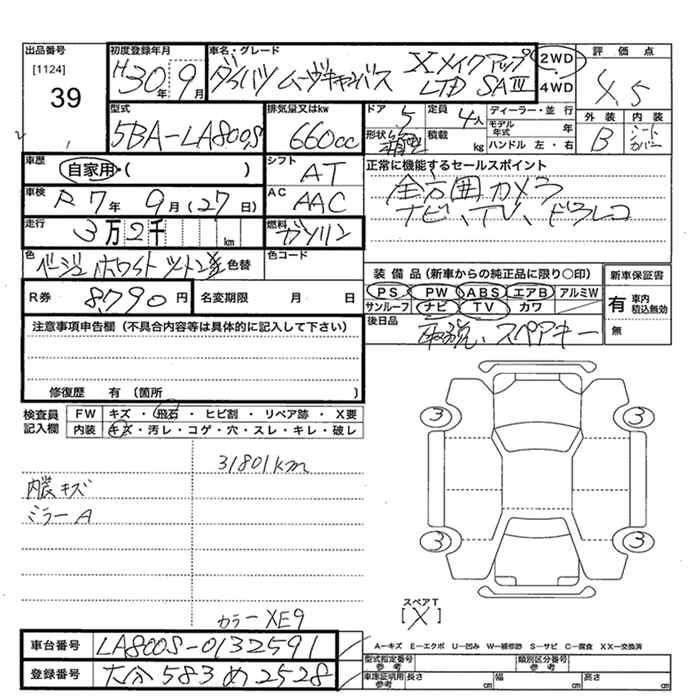 出品番号
[1124]
39
初度登録年月
H30年9月
車名・グレード
ダイハツ ムーヴキャンバス Xメイクアップ
LTD SAⅢ
2WD
4WD
評価点
4.5
外装 内装
B シートカバー
型式
5BA-LA800S
排気量又はkw
660cc
ドア 5
定員 4人
形状 箱型
積載 kg
ディーラー・並行
モデル年式 年
ハンドル 左・右
車歴
自家用・( )
シフト
AT
正常に機能するセールスポイント
全方囲カメラ
ナビ、TV、ドラレコ
車検
R7年9月(27日)
AC
AAC
走行
3万2千 km
燃料
ガソリン
色
ベージュ ホワイト ツートン塗 色替
色コード
装備品(新車からの純正品に限り○印)
PS PW ABS エアB アルミW
サンルーフ ナビ TV カワ
新車保証書
有 車内積込無効
無
R券 8,790円
名変期限 月 日
後日品
取説、スペアキー
注意事項申告欄(不具合内容等は具体的に記入して下さい)
修復歴 有(箇所 )
検査員記入欄
FW キズ・飛石・ヒビ割・リペア跡・X要
内装 キズ・汚レ・コゲ・穴・スレ・キレ・破レ
31801km
内張キズ
ミラーA
カラーXE9
3
3
3
3
スペアT
[X]
A-キズ E-エクボ U-凹み W-補修跡 S-サビ C-腐食 XX-交換済
車台番号 LA800S-0132591
登録番号 大分 583 め 2528
型式指定番号 参考
類別区分番号 参考
車庫証明用 参考
長さ cm
幅 cm
高さ cm